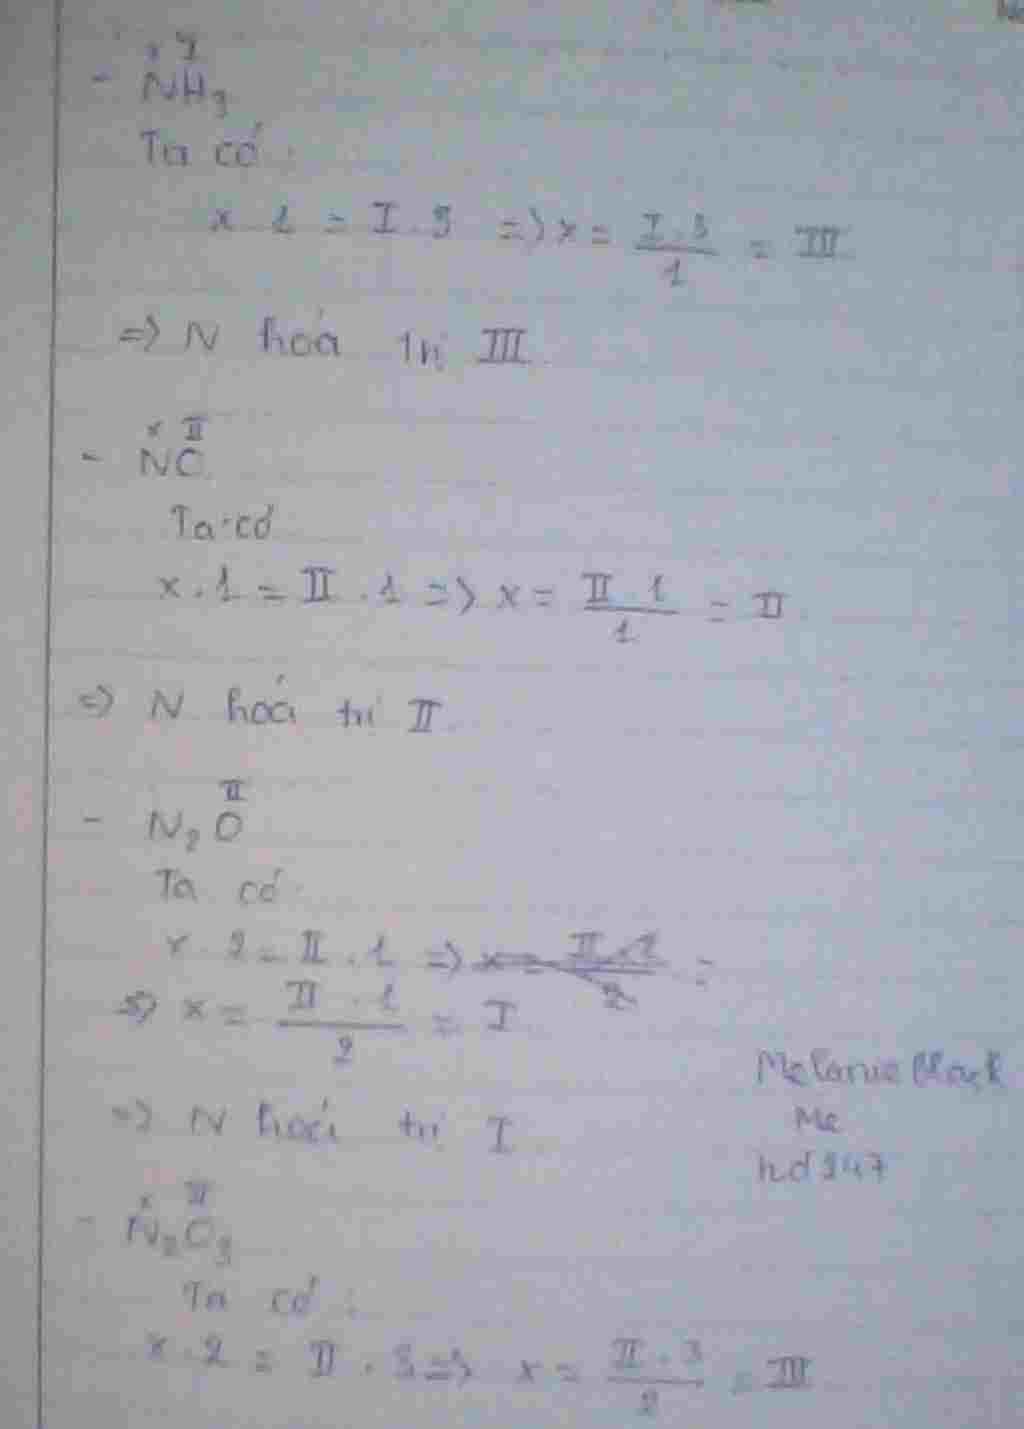 x I
- NH3
Ta có :
x . 1 = I . 3 => x = I . 3 / 1 = III
=> N hoá trị III
x II
- NO
Ta có
x . 1 = II . 1 => x = II . 1 / 1 = II
=> N hoá trị II
II
- N2O
Ta có :
x . 2 = II . 1 => x = II . 1 / 2 =
=> x = II . 1 / 2 = I
=> N hoá trị I
Melanie Black
Me
hd247
x II
- N2O3
Ta có :
x . 2 = II . 3 => x = II . 3 / 2 = III